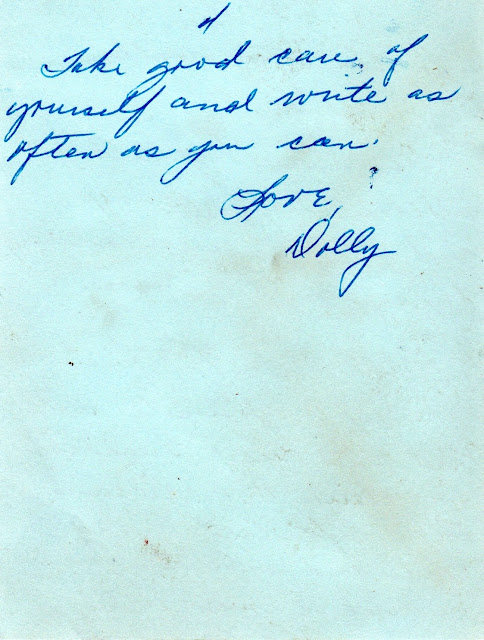 4
Take good care of
yourself and write as
often as you can.
Love,
Dolly